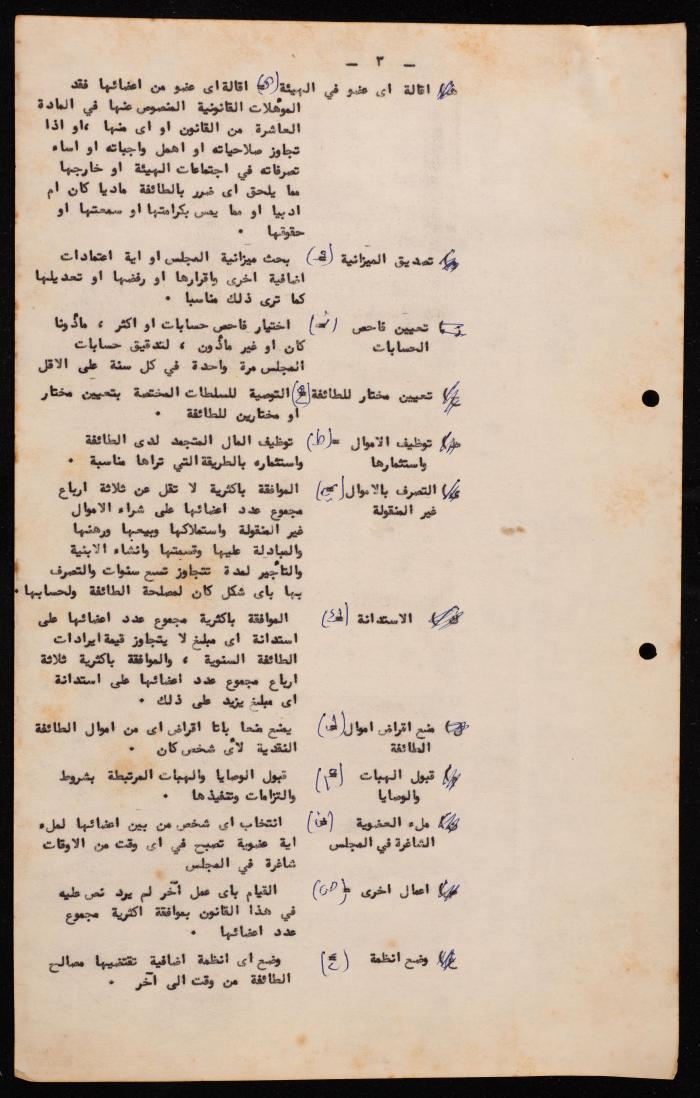 — ٣ —
اقالة اى عضو في الهيئة (هـ) اقالة اى عضو من اعضائها فقد
المؤهلات القانونية المنصوص عنها في المادة
العاشرة من القانون او اى منها ،او اذا
تجاوز صلاحياته او اهمل واجباته او اساء
تصرفاته في اجتماعات الهيئة او خارجها
مما يلحق اى ضرر بالطائفة ماديا كان ام
ادبيا او مما يمس بكرامتها او سمعتها او
حقوقها .
تصديق الميزانية بحث ميزانية المجلس او اية اعتمادات
اضافية اخرى واقرارها او رفضها او تعديلها
كما ترى ذلك مناسبا .
تعيين فاحص اختيار فاحص حسابات او اكثر ، مأذونا
الحسابات كان او غير مأذون ، لتدقيق حسابات
المجلس مرة واحدة في كل سنة على الاقل
تعيين مختار للطائفة (ح) التوصية للسلطات المختصة بتعيين مختار
او مختارين للطائفة .
توظيف الاموال = (ط) توظيف المال المتجمد لدى الطائفة
واستثمارها واستثماره بالطريقة التي تراها مناسبة .
التصرف بالاموال (ى) الموافقة باكثرية لا تقل عن ثلاثة ارباع
غير المنقولة مجموع عدد اعضائها على شراء الاموال
غير المنقولة واستملاكها وبيعها ورهنها
والمبادلة عليها وقسمتها وانشاء الابنية
والتأجير لمدة تتجاوز تسع سنوات والتصرف
بها باى شكل كان لمصلحة الطائفة ولحسابها .
الاستدانة (ك) الموافقة باكثرية مجموع عدد اعضائها على
استدانة اى مبلغ لا يتجاوز قيمة ايرادات
الطائفة السنوية ، والموافقة باكثرية ثلاثة
ارباع مجموع عدد اعضائها على استدانة
اى مبلغ يزيد على ذلك .
منع اقراض اموال (ل) يمنع منعا باتا اقراض اى من اموال الطائفة
الطائفة النقدية لأى شخص كان .
قبول الهبات (م) قبول الوصايا والهبات المرتبطة بشروط
والوصايا والتزامات وتنفيذها .
ملء العضوية (ن) انتخاب اى شخص من بين اعضائها لملء
الشاغرة في المجلس اية عضوية تصبح في اى وقت من الاوقات
شاغرة في المجلس
اعمال اخرى = القيام باى عمل آخر لم يرد نص عليه
في هذا القانون بموافقة اكثرية مجموع
عدد اعضائها .
وضع انظمة (ع) وضع اى انظمة اضافية تقتضيها مصالح
الطائفة من وقت الى آخر .